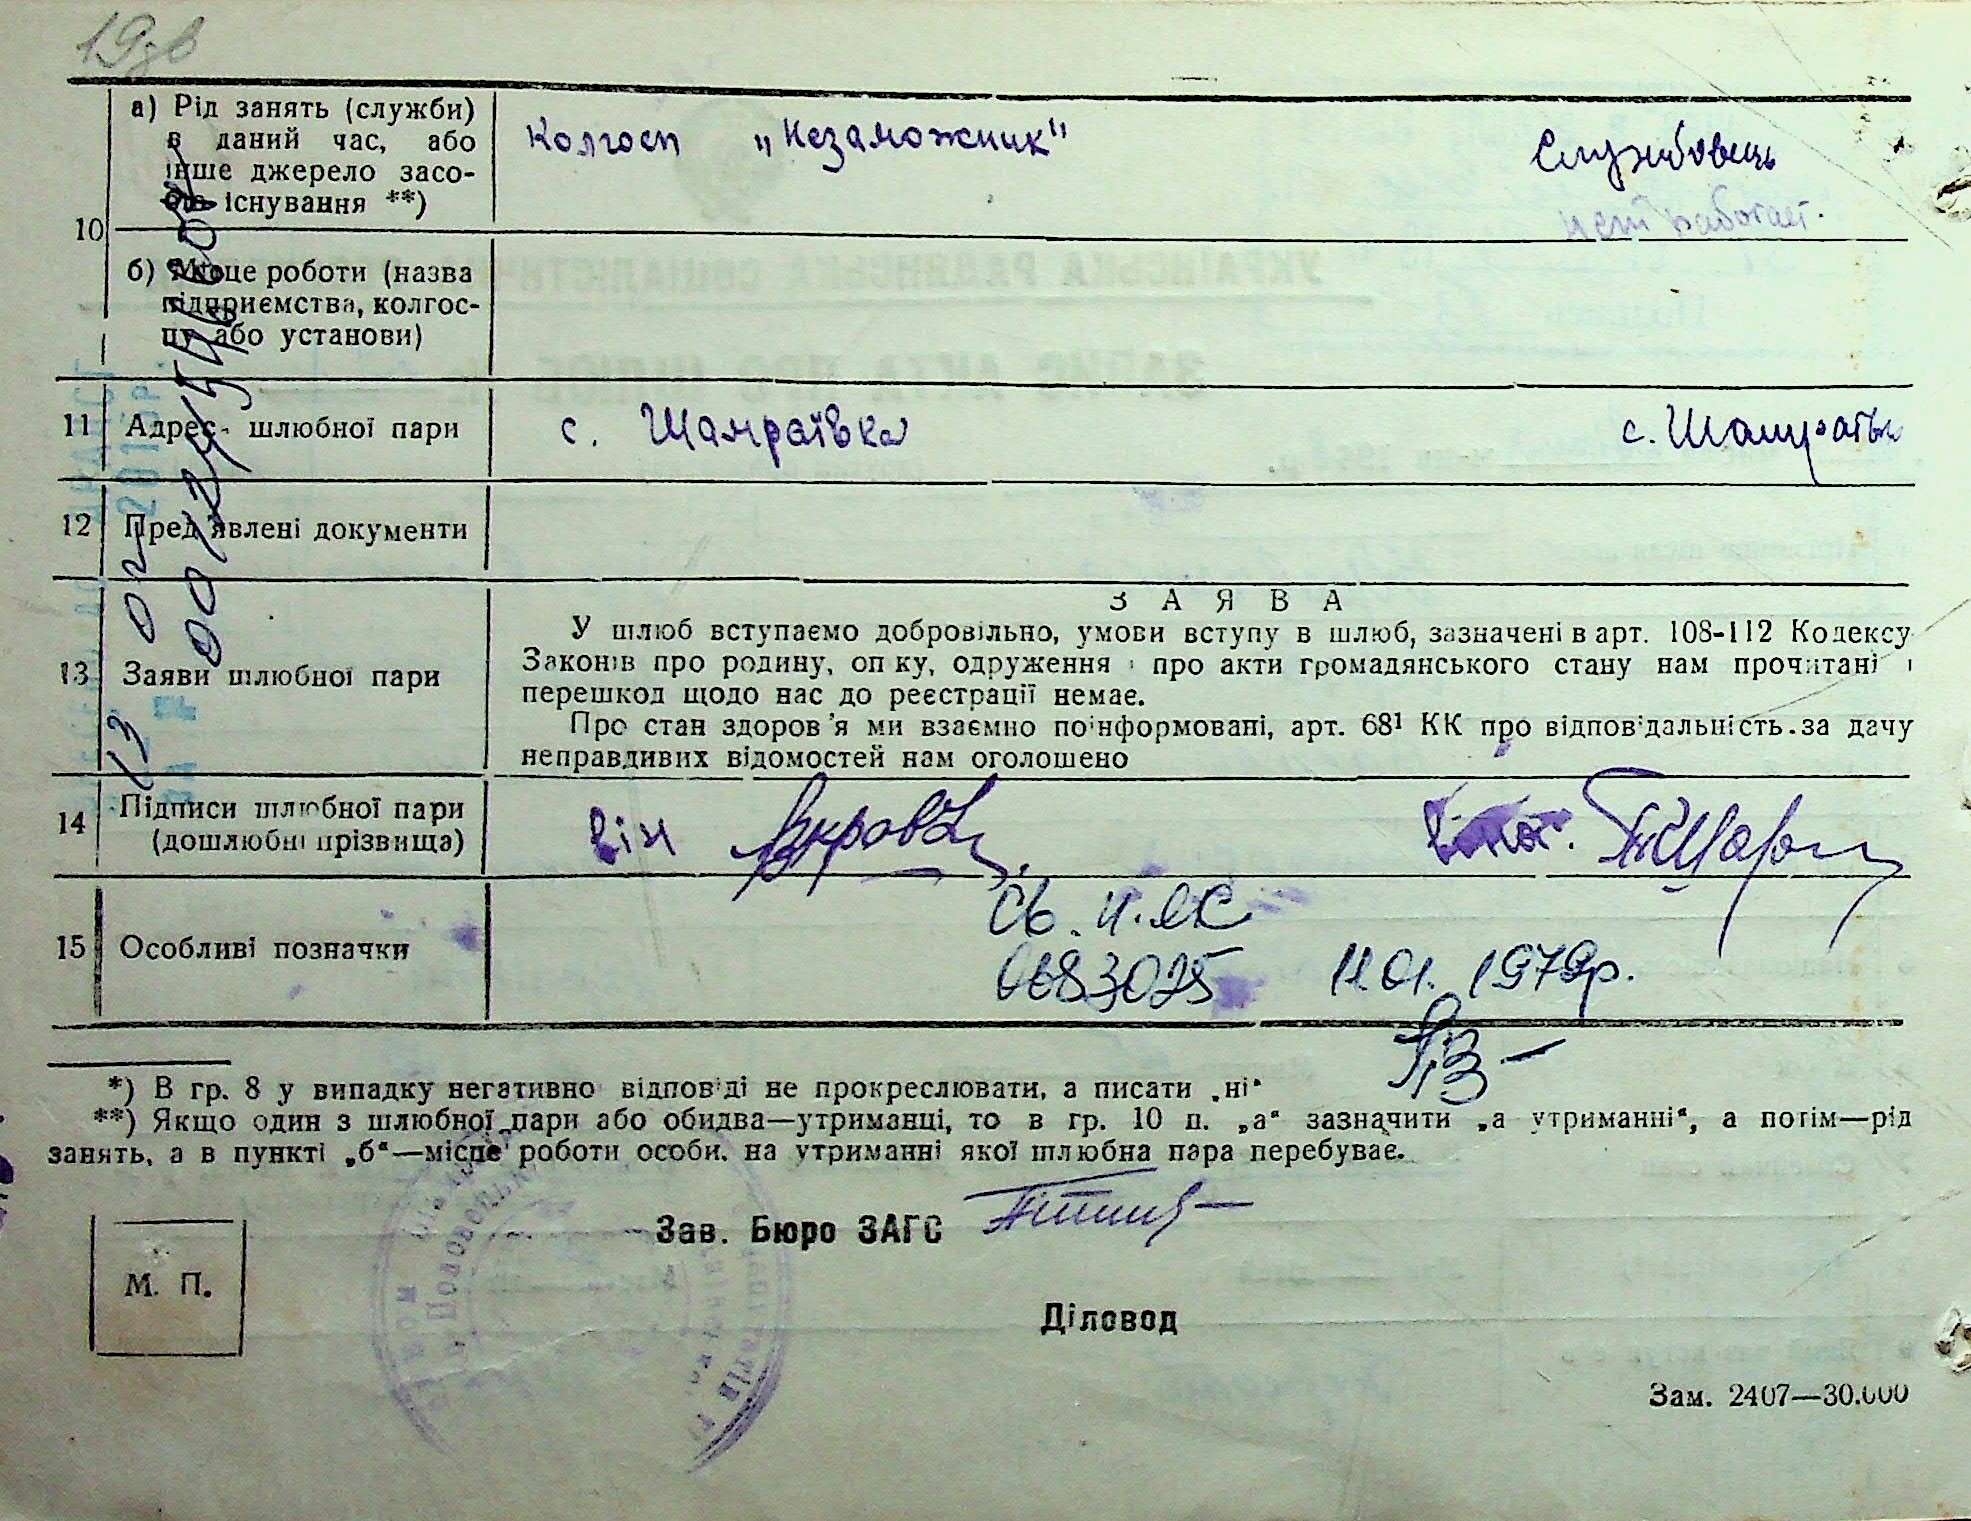 19зв
а) Рід занять (служби)
в даний час, або
інше джерело засо-
бів існування **)
Колгосп „Незаможник"
Службовець
работает.
10
б) Місце роботи (назва
підприємства, колгос-
пу або установи)
11 Адрес шлюбної пари
с. Шамраївка
с. Шамраївка
12 Пред'явлені документи
13 Заяви шлюбної пари
ЗАЯВА
У шлюб вступаємо добровільно, умови вступу в шлюб, зазначені в арт. 108-112 Кодексу
Законів про родину, опіку, одруження і про акти громадянського стану нам прочитані і
перешкод щодо нас до реєстрації немає.
Про стан здоров'я ми взаємно поінформовані, арт. 68¹ КК про відповідальність за дачу
неправдивих відомостей нам оголошено
14 Підписи шлюбної пари
(дошлюбні прізвища)
Він
15 Особливі позначки
0683025 11.01.1979р.
*) В гр. 8 у випадку негативно відповіді не прокреслювати, а писати „ні"
**) Якщо один з шлюбної пари або обидва—утриманці, то в гр. 10 п. „а" зазначити „а утриманні", а потім—рід
занять, а в пункті „б"—місце роботи особи, на утриманні якої шлюбна пара перебуває.
Зав. Бюро ЗАГС
М. П.
Діловод
Зам. 2407—30.000